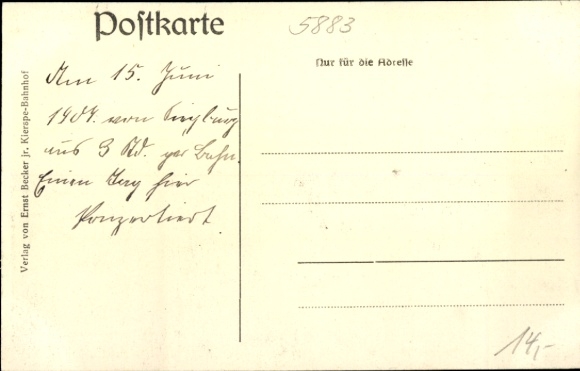 Postkarte
5883
Nur für die Adresse
Am 15. Juni
1907. von Siegburg
aus 3 Std. per Bahn.
Einen Tag hier
Konzertiert
Verlag von Ernst Becker jr. Kierspe-Bahnhof
14,-